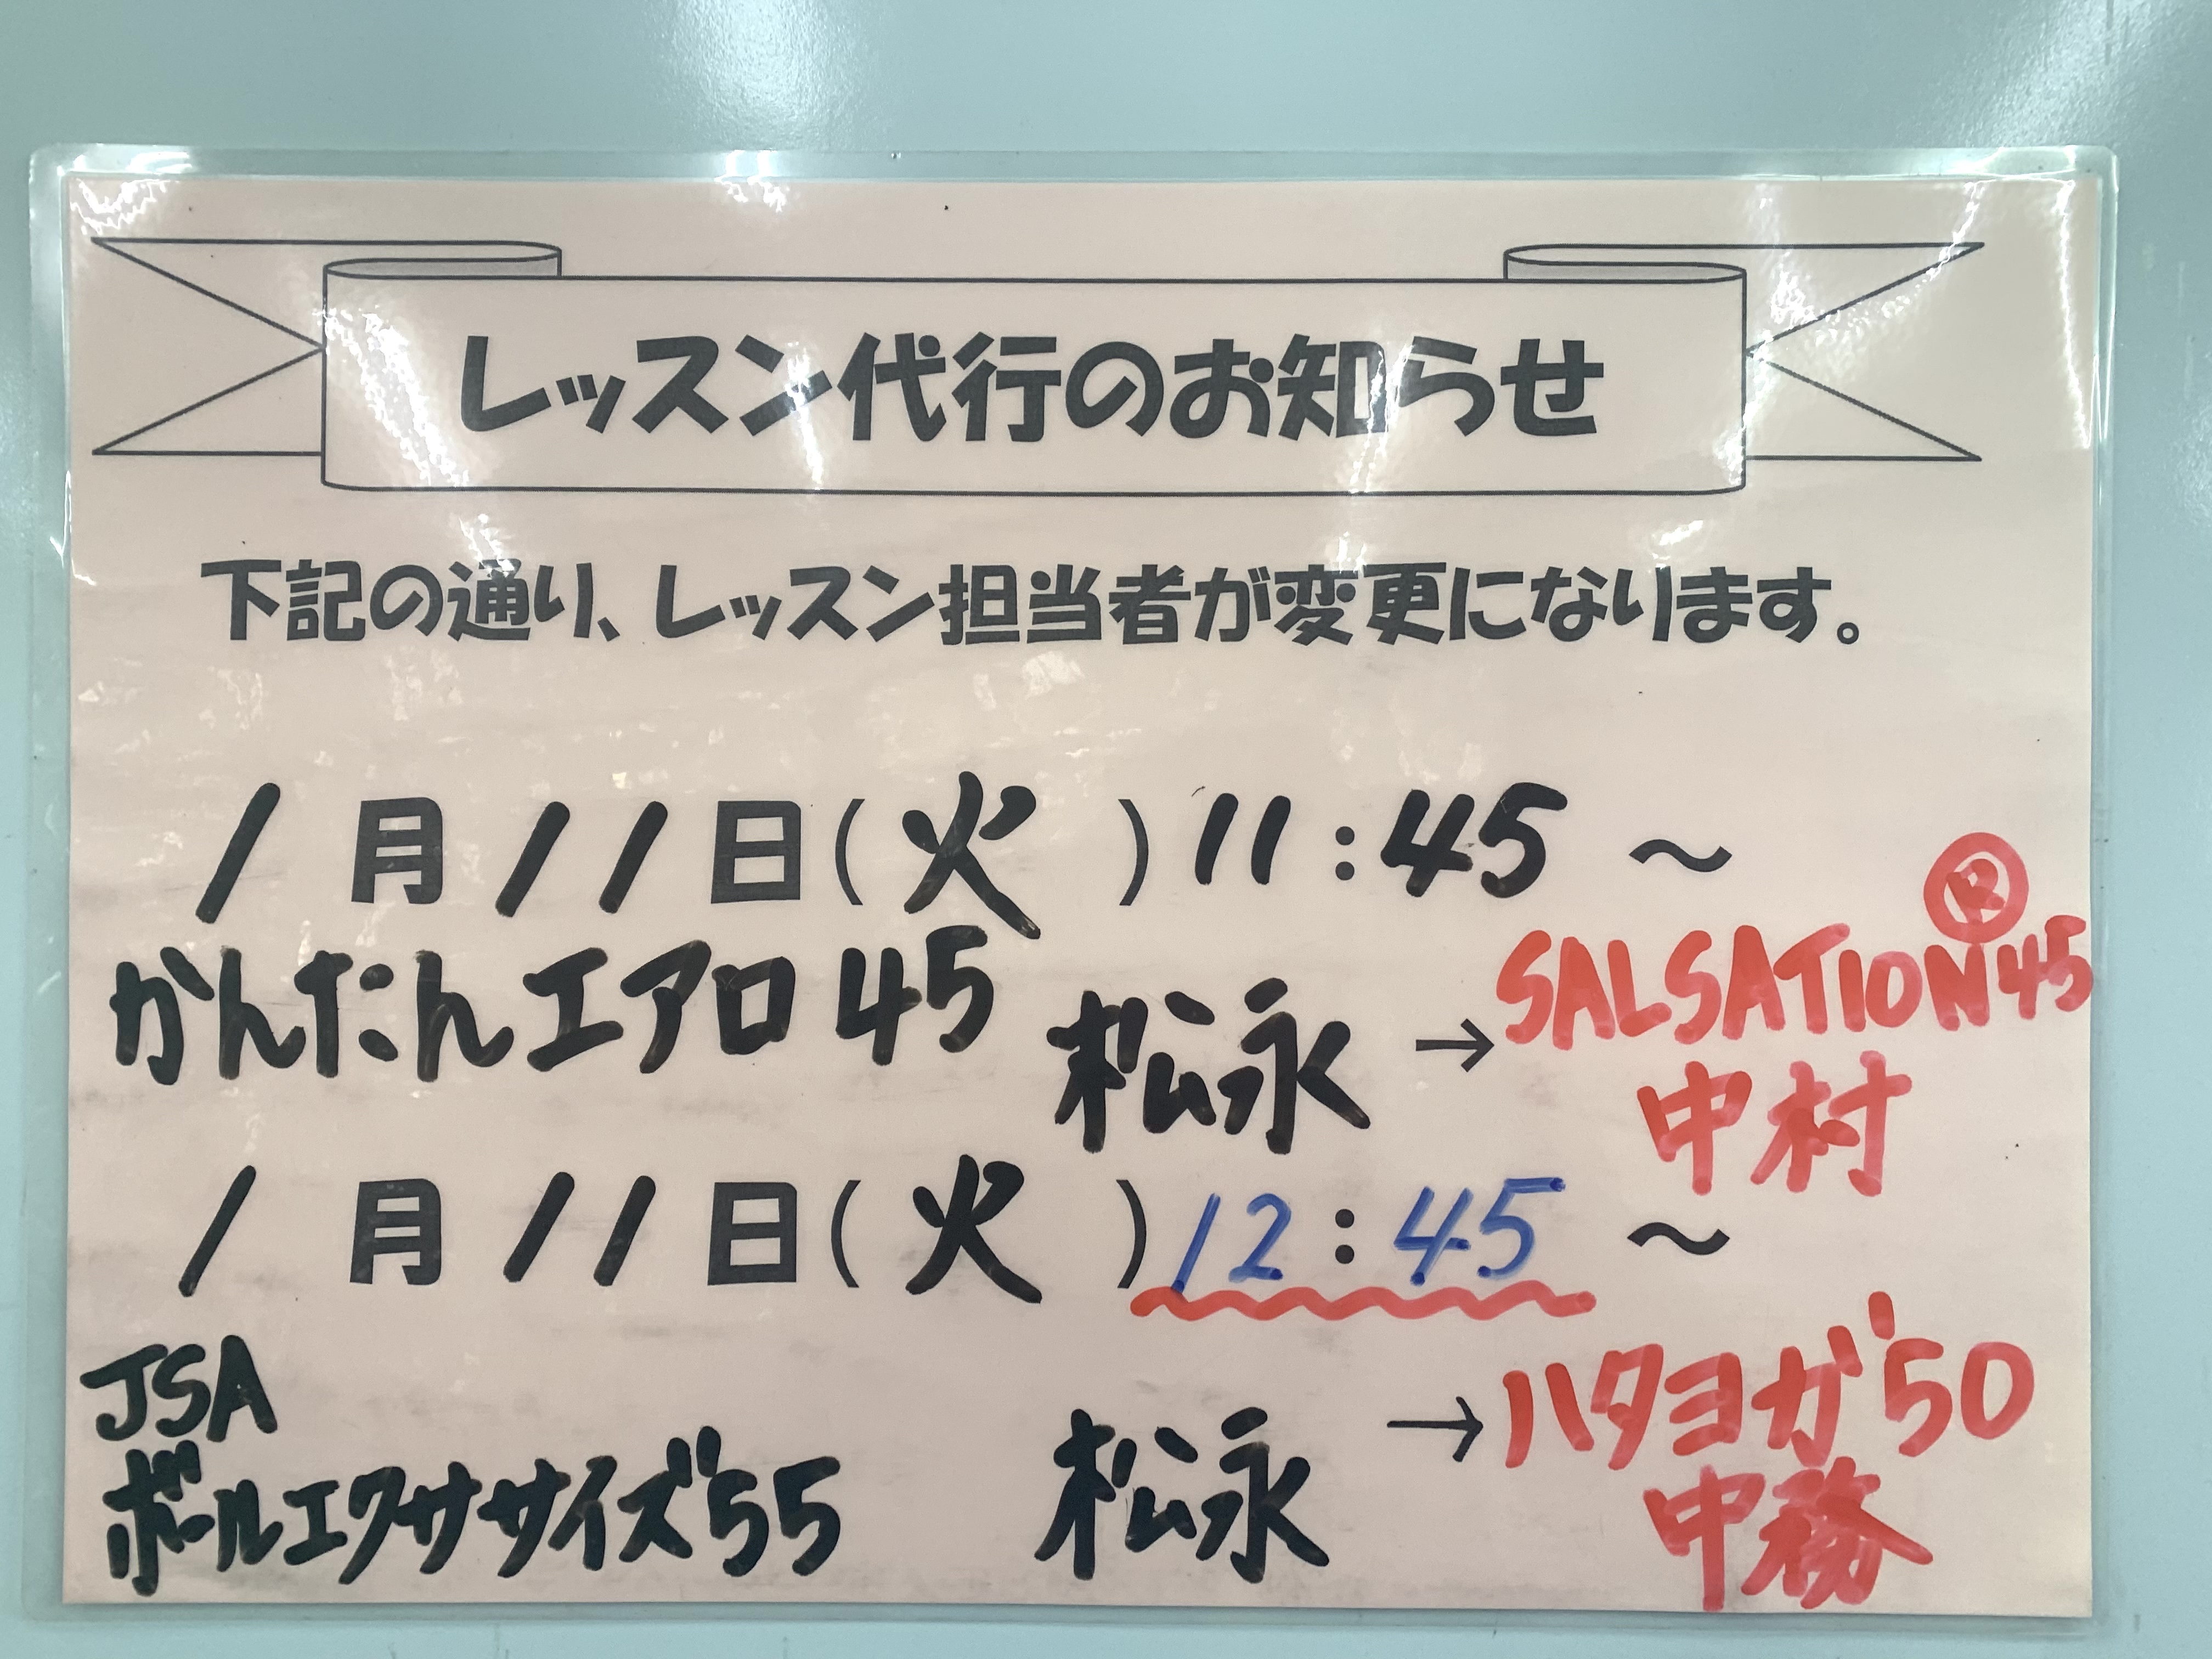 レッスン代行のお知らせ
下記の通り、レッスン担当者が変更になります。
1月11日(火)11:45～
かんたんエアロ45 松永→SALSATION®45
中村
1月11日(火)12:45～
JSA
ボールエクササイズ55 松永→ハタヨガ50
中務